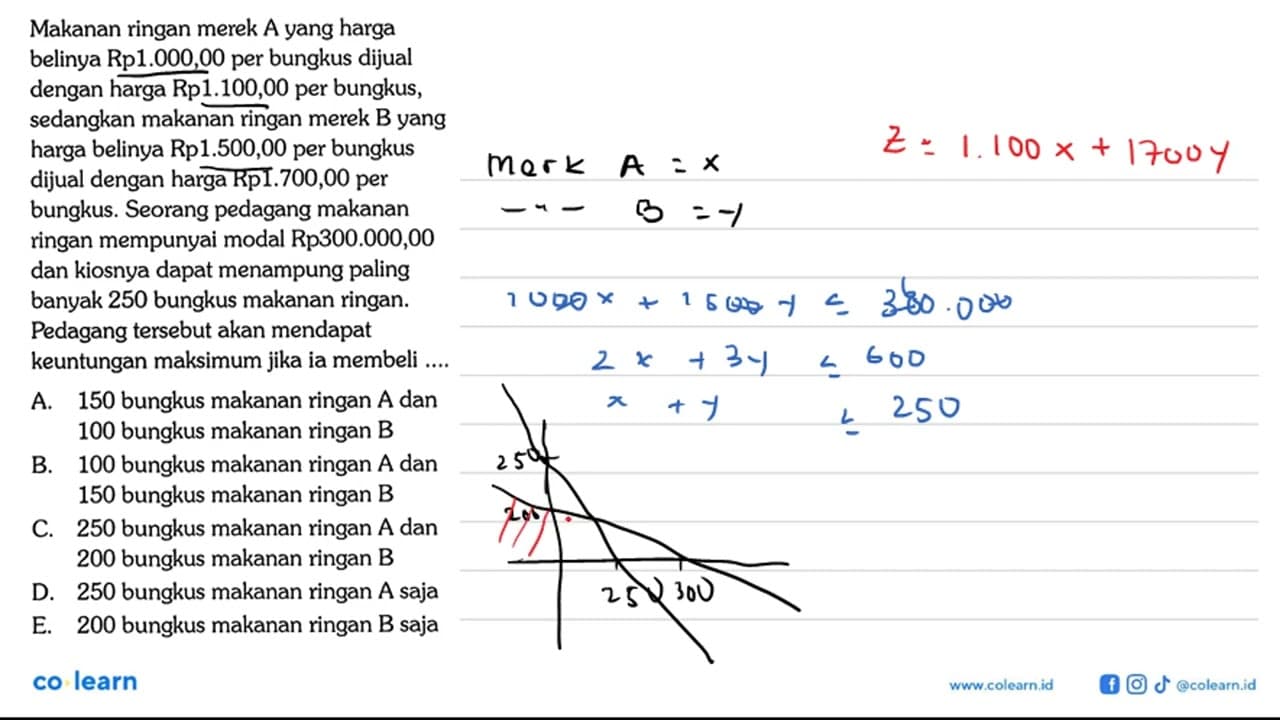 Makanan ringan merek A yang harga
belinya Rp1.000,00 per bungkus dijual
dengan harga Rp1.100,00 per bungkus,
sedangkan makanan ringan merek B yang
harga belinya Rp1.500,00 per bungkus
dijual dengan harga Rp1.700,00 per
bungkus. Seorang pedagang makanan
ringan mempunyai modal Rp300.000,00
dan kiosnya dapat menampung paling
banyak 250 bungkus makanan ringan.
Pedagang tersebut akan mendapat
keuntungan maksimum jika ia membeli ....
A. 150 bungkus makanan ringan A dan
100 bungkus makanan ringan B
B. 100 bungkus makanan ringan A dan
150 bungkus makanan ringan B
C. 250 bungkus makanan ringan A dan
200 bungkus makanan ringan B
D. 250 bungkus makanan ringan A saja
E. 200 bungkus makanan ringan B saja
Merk A = x
—"— B = y
Z = 1.100 x + 1700 y
1000 x + 1500 y ≤ .000
2 x + 3y ≤ 600
x + y ≤ 250
250
200
250 300
co learn
www.colearn.id
@colearn.id